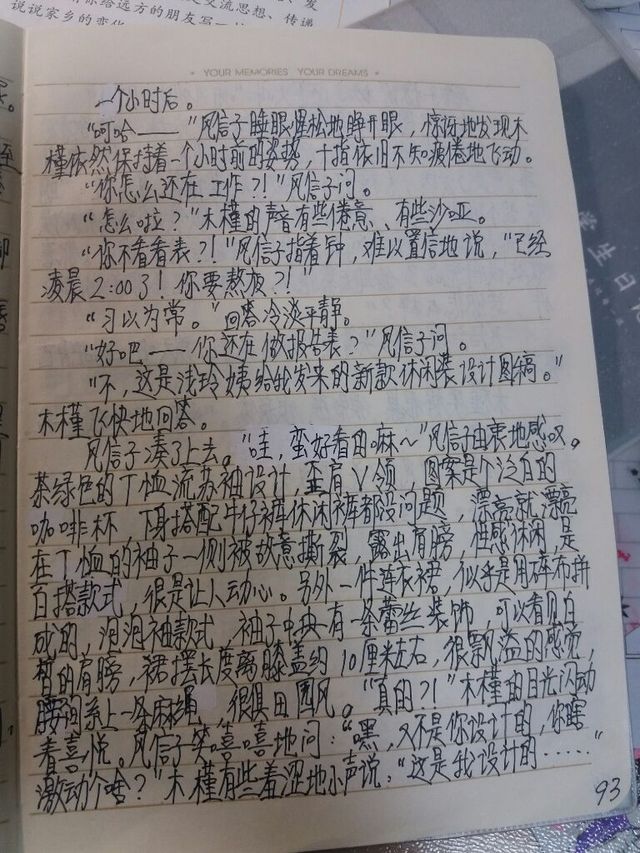 说说家乡的变化
YOUR MEMORIES YOUR DREAMS
一个小时后。
“呵哈——”风信子睡眼惺松地睁开眼，惊讶地发现木
槿依然保持着一个小时前的姿势，十指依旧不知疲倦地飞动。
“你怎么还在工作？！”风信子问。
“怎么啦？”木槿的声音有些倦意、有些沙哑。
“你不看看表？！”风信子指着钟，难以置信地说，“已经
凌晨2:00了！你要熬夜？！”
“习以为常。”回答冷淡平静。
“好吧——你还在做报告表？”风信子问。
“不，这是浅玲姨给我发来的新款休闲装设计图稿。”
木槿飞快地回答。
风信子凑了上去。“哇，蛮好看的嘛～”风信子由衷地感叹。
茶绿色的T恤流苏袖设计，歪肩V领，图案是个泛白的
咖啡杯，下身搭配牛仔裤休闲裤都没问题，漂亮就漂亮
在T恤的袖子一侧被故意撕裂，露出肩膀，性感休闲，是
百搭款式，很是让人动心。另外一件连衣裙，似乎是用碎布拼
成的，泡泡袖款式，袖子中央有一条蕾丝装饰，可以看见白
皙的肩膀，裙摆长度离膝盖约10厘米左右，很飘溢的感觉，
腰间系上一条麻绳，很俱田园风。“真的？！”木槿的目光闪动
着喜悦。风信子笑嘻嘻地问：“嘿，又不是你设计的，你瞎
激动个啥？”木槿有些羞涩地小声说：“这是我设计的……”
93
学生日记